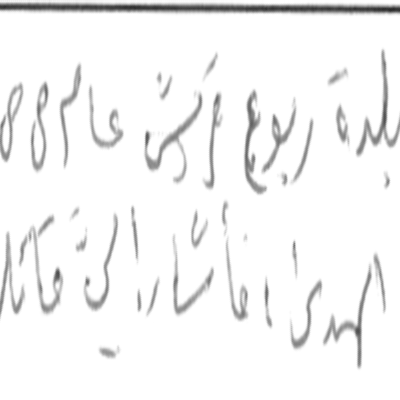 بلدة ربوع قريش عام 88
الهدى، فأشار إليّ قائلا